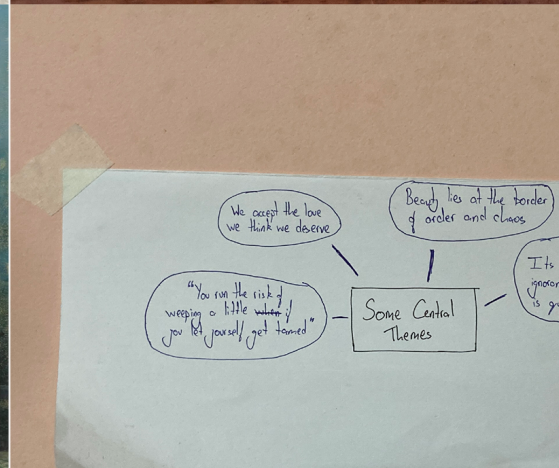 We accept the love
we think we deserve
Beauty lies at the border
of order and chaos
"You run the risk of
weeping a little when if
you let yourself get tamed"
Some Central
Themes
Its
is